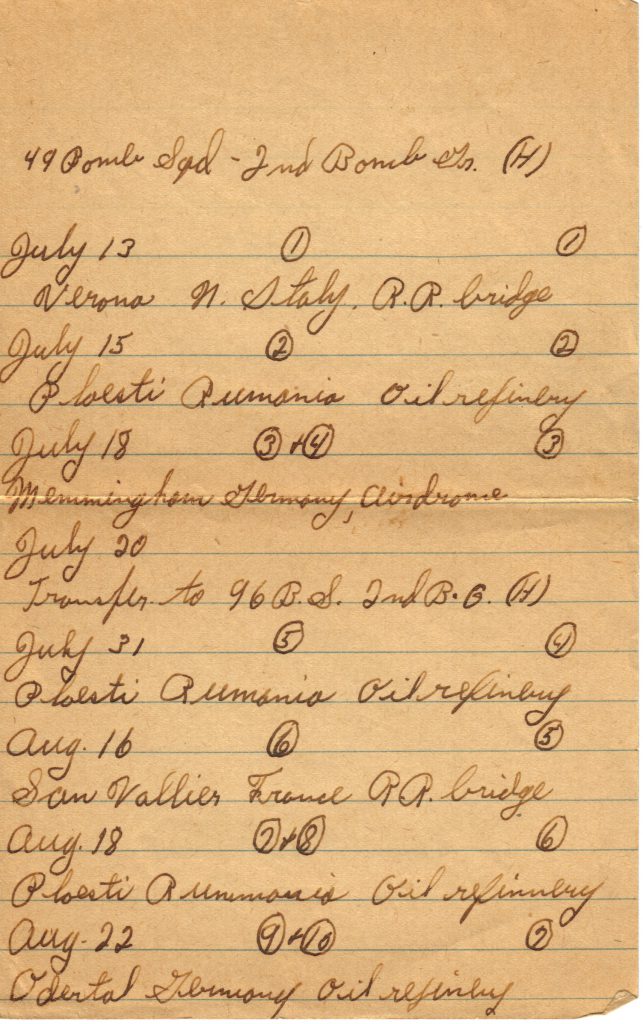 49 Bomb Sqd - 2nd Bomb Gr. (H)
July 13 ① ①
Verona N. Italy, R.R. bridge
July 15 ② ②
Ploesti Rumania Oil refinery
July 18 ③ + ④ ③
Memmingham Germany, Airdrome
July 20
Transfer to 96 B.S. 2nd B.G. (H)
July 31 ⑤ ④
Ploesti Rumania Oil refinery
Aug. 16 ⑥ ⑤
San Vallier France R.R. bridge
Aug. 18 ⑦ + ⑧ ⑥
Ploesti Rummania Oil refinnery
Aug. 22 ⑨ + ⑩ ⑦
Odertal Germany Oil refinery